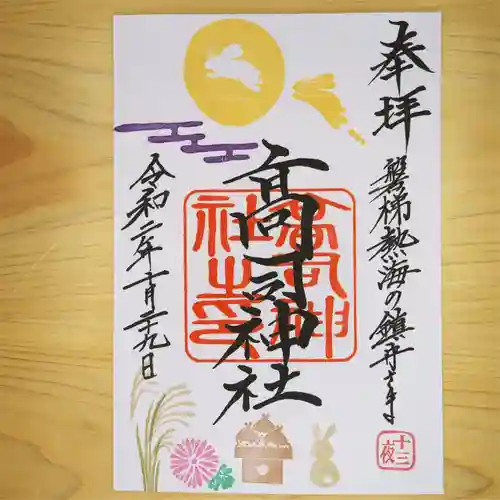 奉拝
磐梯熱海の鎮守さま
十三夜
高司神社
高司神
社之印
令和二年十月二十九日